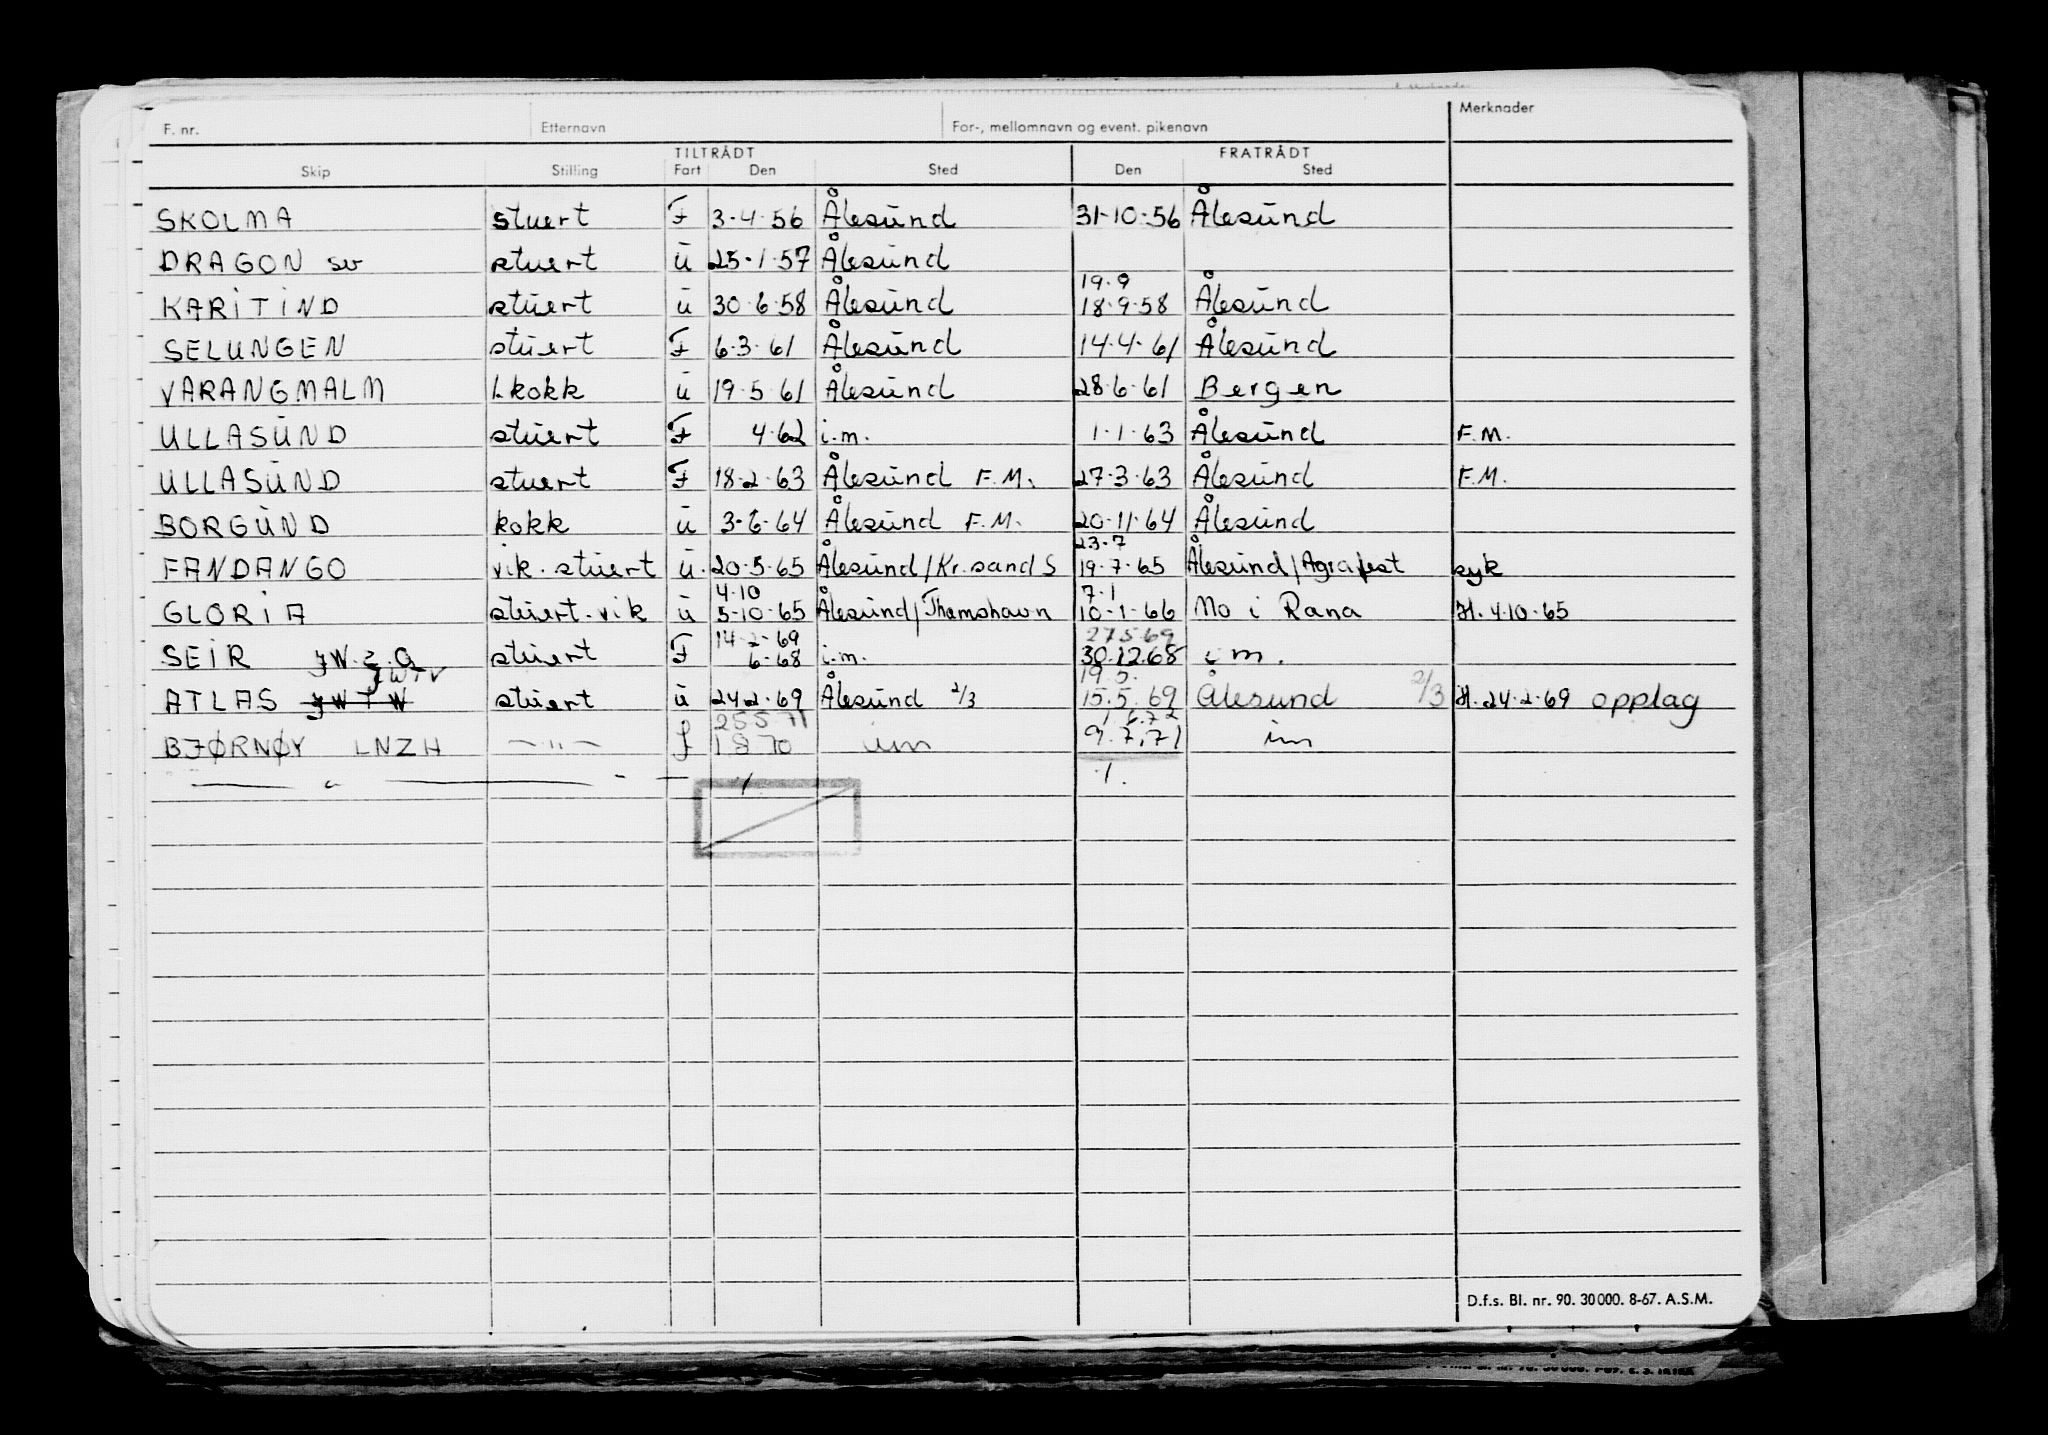 F. nr. Etternavn For-, mellomnavn og event. pikenavn Merknader
TILTRÅDT FRATRÅDT
Skip Stilling Fart Den Sted Den Sted
SKOLMA stuert F 3-4-56 Ålesund 31-10-56 Ålesund
DRAGON sv stuert u 25-1-57 Ålesund
19.9
KARITIND stuert u 30-6-58 Ålesund 18-9-58 Ålesund
SELUNGEN stuert F 6-3-61 Ålesund 14-4-61 Ålesund
VARANGMALM 1.kokk u 19-5-61 Ålesund 28-6-61 Bergen
ULLASUND stuert F 4-62 i.m. 1-1-63 Ålesund F.M.
ULLASUND stuert F 18-2-63 Ålesund F.M. 27-3-63 Ålesund F.M.
BORGUND kokk u 3-6-64 Ålesund F.M. 20-11-64 Ålesund
23-7
FANDANGO vik. stuert u. 20-5-65 Ålesund/Kr.sand S 19-7-65 Ålesund/Agrafest syk
4-10 7-1
GLORIA stuert-vik u 5-10-65 Ålesund/Thomshavn 10-1-66 Mo i Rana H. 4-10-65
14-2-69 27.5.69
SEIR stuert F 6-68 i.m. 30.12.68 i m.
JWTV 19.5.
ATLAS JWTW stuert u 24-2-69 Ålesund 2/3 15.5.69 Ålesund 2/3 H. 24-2-69 opplag
25571 1 6.72
BJØRNØY LNZH —"— f 1 8 70 im 9.7.71 im
— " — " — ./. ./.
D.f.s. Bl. nr. 90. 30000. 8-67. A.S.M.